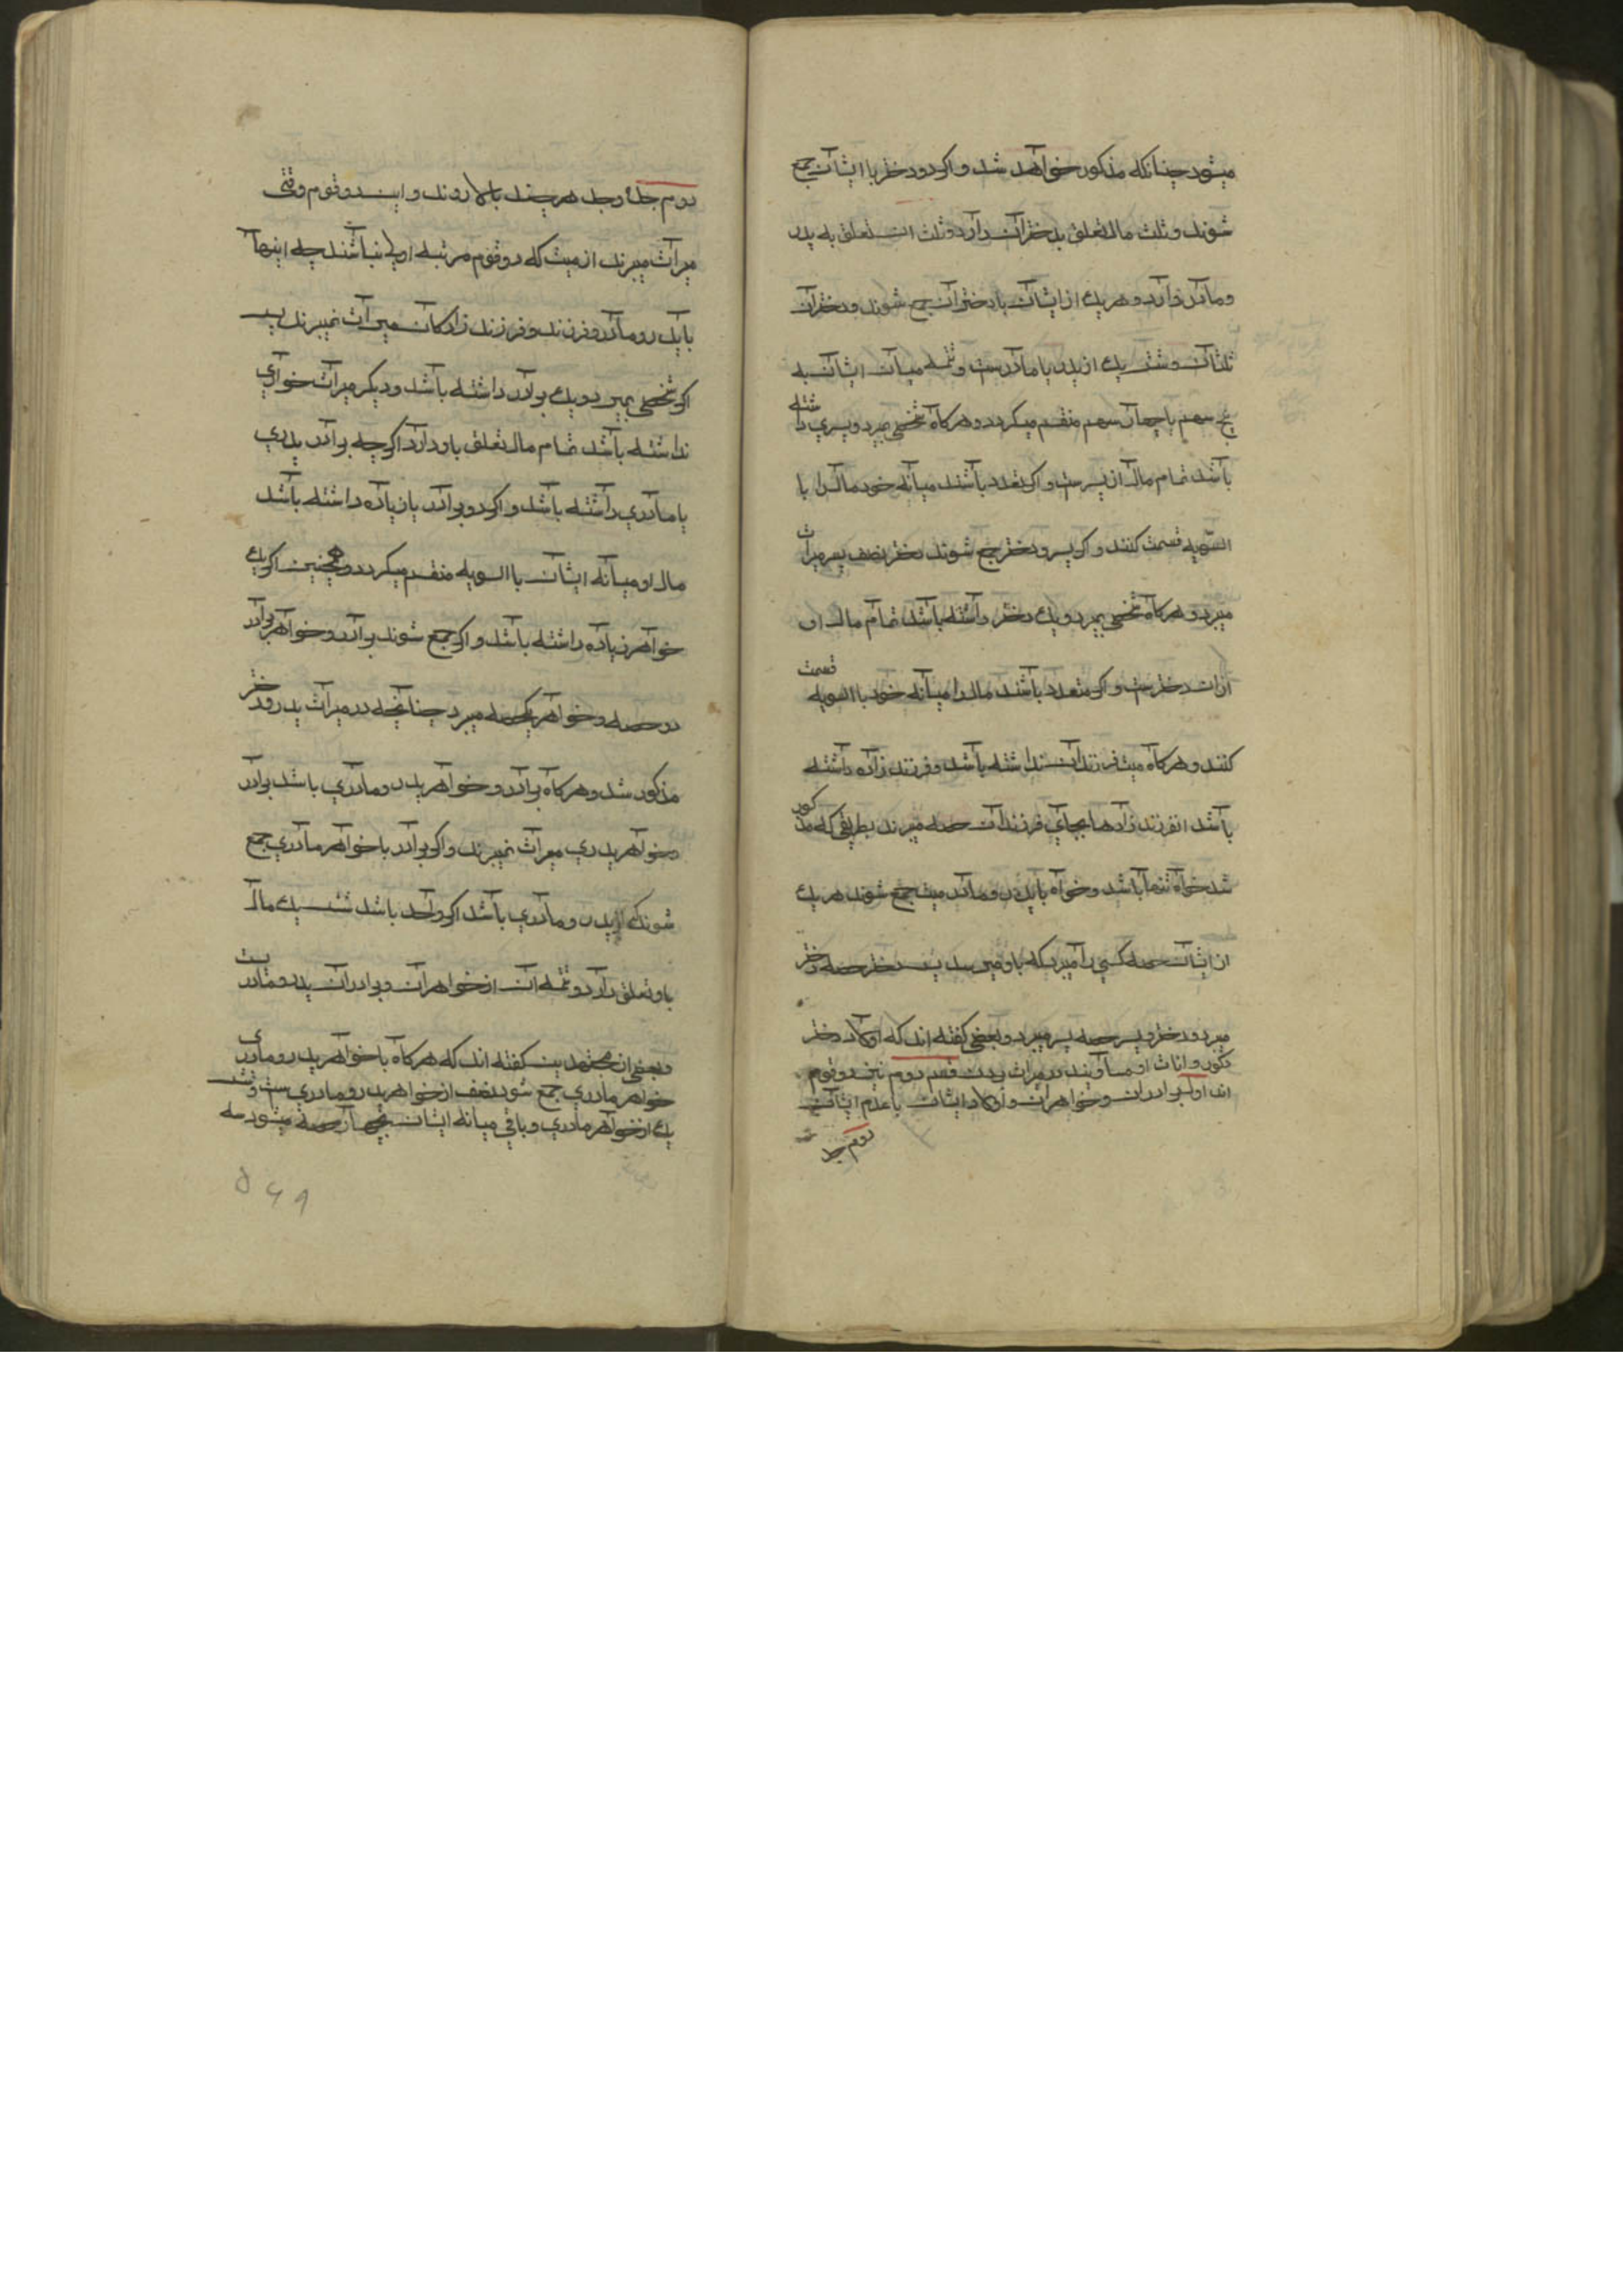 میشود چنانکه مذکور خواهد شد و اکر دو دختر با ایشان جمع
شوند و ثلث مال تعلق بدختران دارد و ثلث ان تعلق به پدر
و مادر دارد و هر یک از ایشان با دختران جمع شوند و دختران
ثلثان و شش یک از پدر یا مادرست و تتمه میان ایشان به
پنج سهم یا چهار سهم منقسم میکردد و هرکاه شخصی بمیرد و پسری داشته
باشد تمام مال از پسرست و اکر تعدد باشند میانه خود مال را با
السویه قسمت کنند و اکر پسر و دختر جمع شوند دختر نصف پسر میراث
میبرد و هرکاه شخصی بمیرد و یک دختر داشته باشد تمام مال او
از ان دخترست و اکر متعدد باشند مال را میانه خود با السویه قسمت
کنند و هرکاه میت فرزندان نداشته باشد و فرزند زاده داشته
باشد ان فرزند زادها بجای فرزندان حصه میبرند بطریقی که مذکور
شد خواه تنها باشد و خواه با پدر و مادر میت جمع شوند هر یک
از ایشان حصه کسی را میبرد که باو میرسد پسر دختر حصه دختر
میبرد و دختر پسر حصه پسر میبرد و بعضی کفته اند که اولاد دختر
ذکور و اناث او مساویند در میراث بردن قسم دوم نیز دو قوم
اند اول برادران و خواهران و اولاد ایشان با عدم ایشان
دوم جد
دوم جد و جده هر چند بالا روند و این دو قوم وقتی
میراث میبرند از میت که دو قوم مرتبه اولی نباشند چه اینها
با پدر و مادر و فرزند و فرزند زادکان میراث نمیبرند پس
اکر شخصی بمیرد و یک برادر داشته باشد و دیکر میراث خواری
نداشته باشد تمام مال تعلق باو دارد اکرچه برادر پدری
یا مادری داشته باشد و اکر دو برادر یا زیاده داشته باشد
مال او میانه ایشان با السویه منقسم میکردد و همچنین اکر یک
خواهر زیاده داشته باشد و اکر جمع شوند برادر و خواهر برادر
دو حصه و خواهر یکحصه میبرد چنانچه در میراث پدر و دختر
مذکور شد و هرکاه برادر و خواهر پدر و مادری باشد برادر
و خواهر پدری میراث نمیبرند و اکر برادر با خواهر مادری جمع
شوند که از پدر و مادری باشد اکر واحد باشد شش یک مال
باو تعلق دارد و تتمه ان از خواهران و برادران پدر و مادریست
و بعضی از مجتهدین کفته اند که هرکاه با خواهر پدر و مادری
خواهر مادری جمع شود نصف از خواهر پدر و مادری ست و شش
یک از خواهر مادری و باقی میانه ایشان بچهار حصه میشود سه
۵۶۹